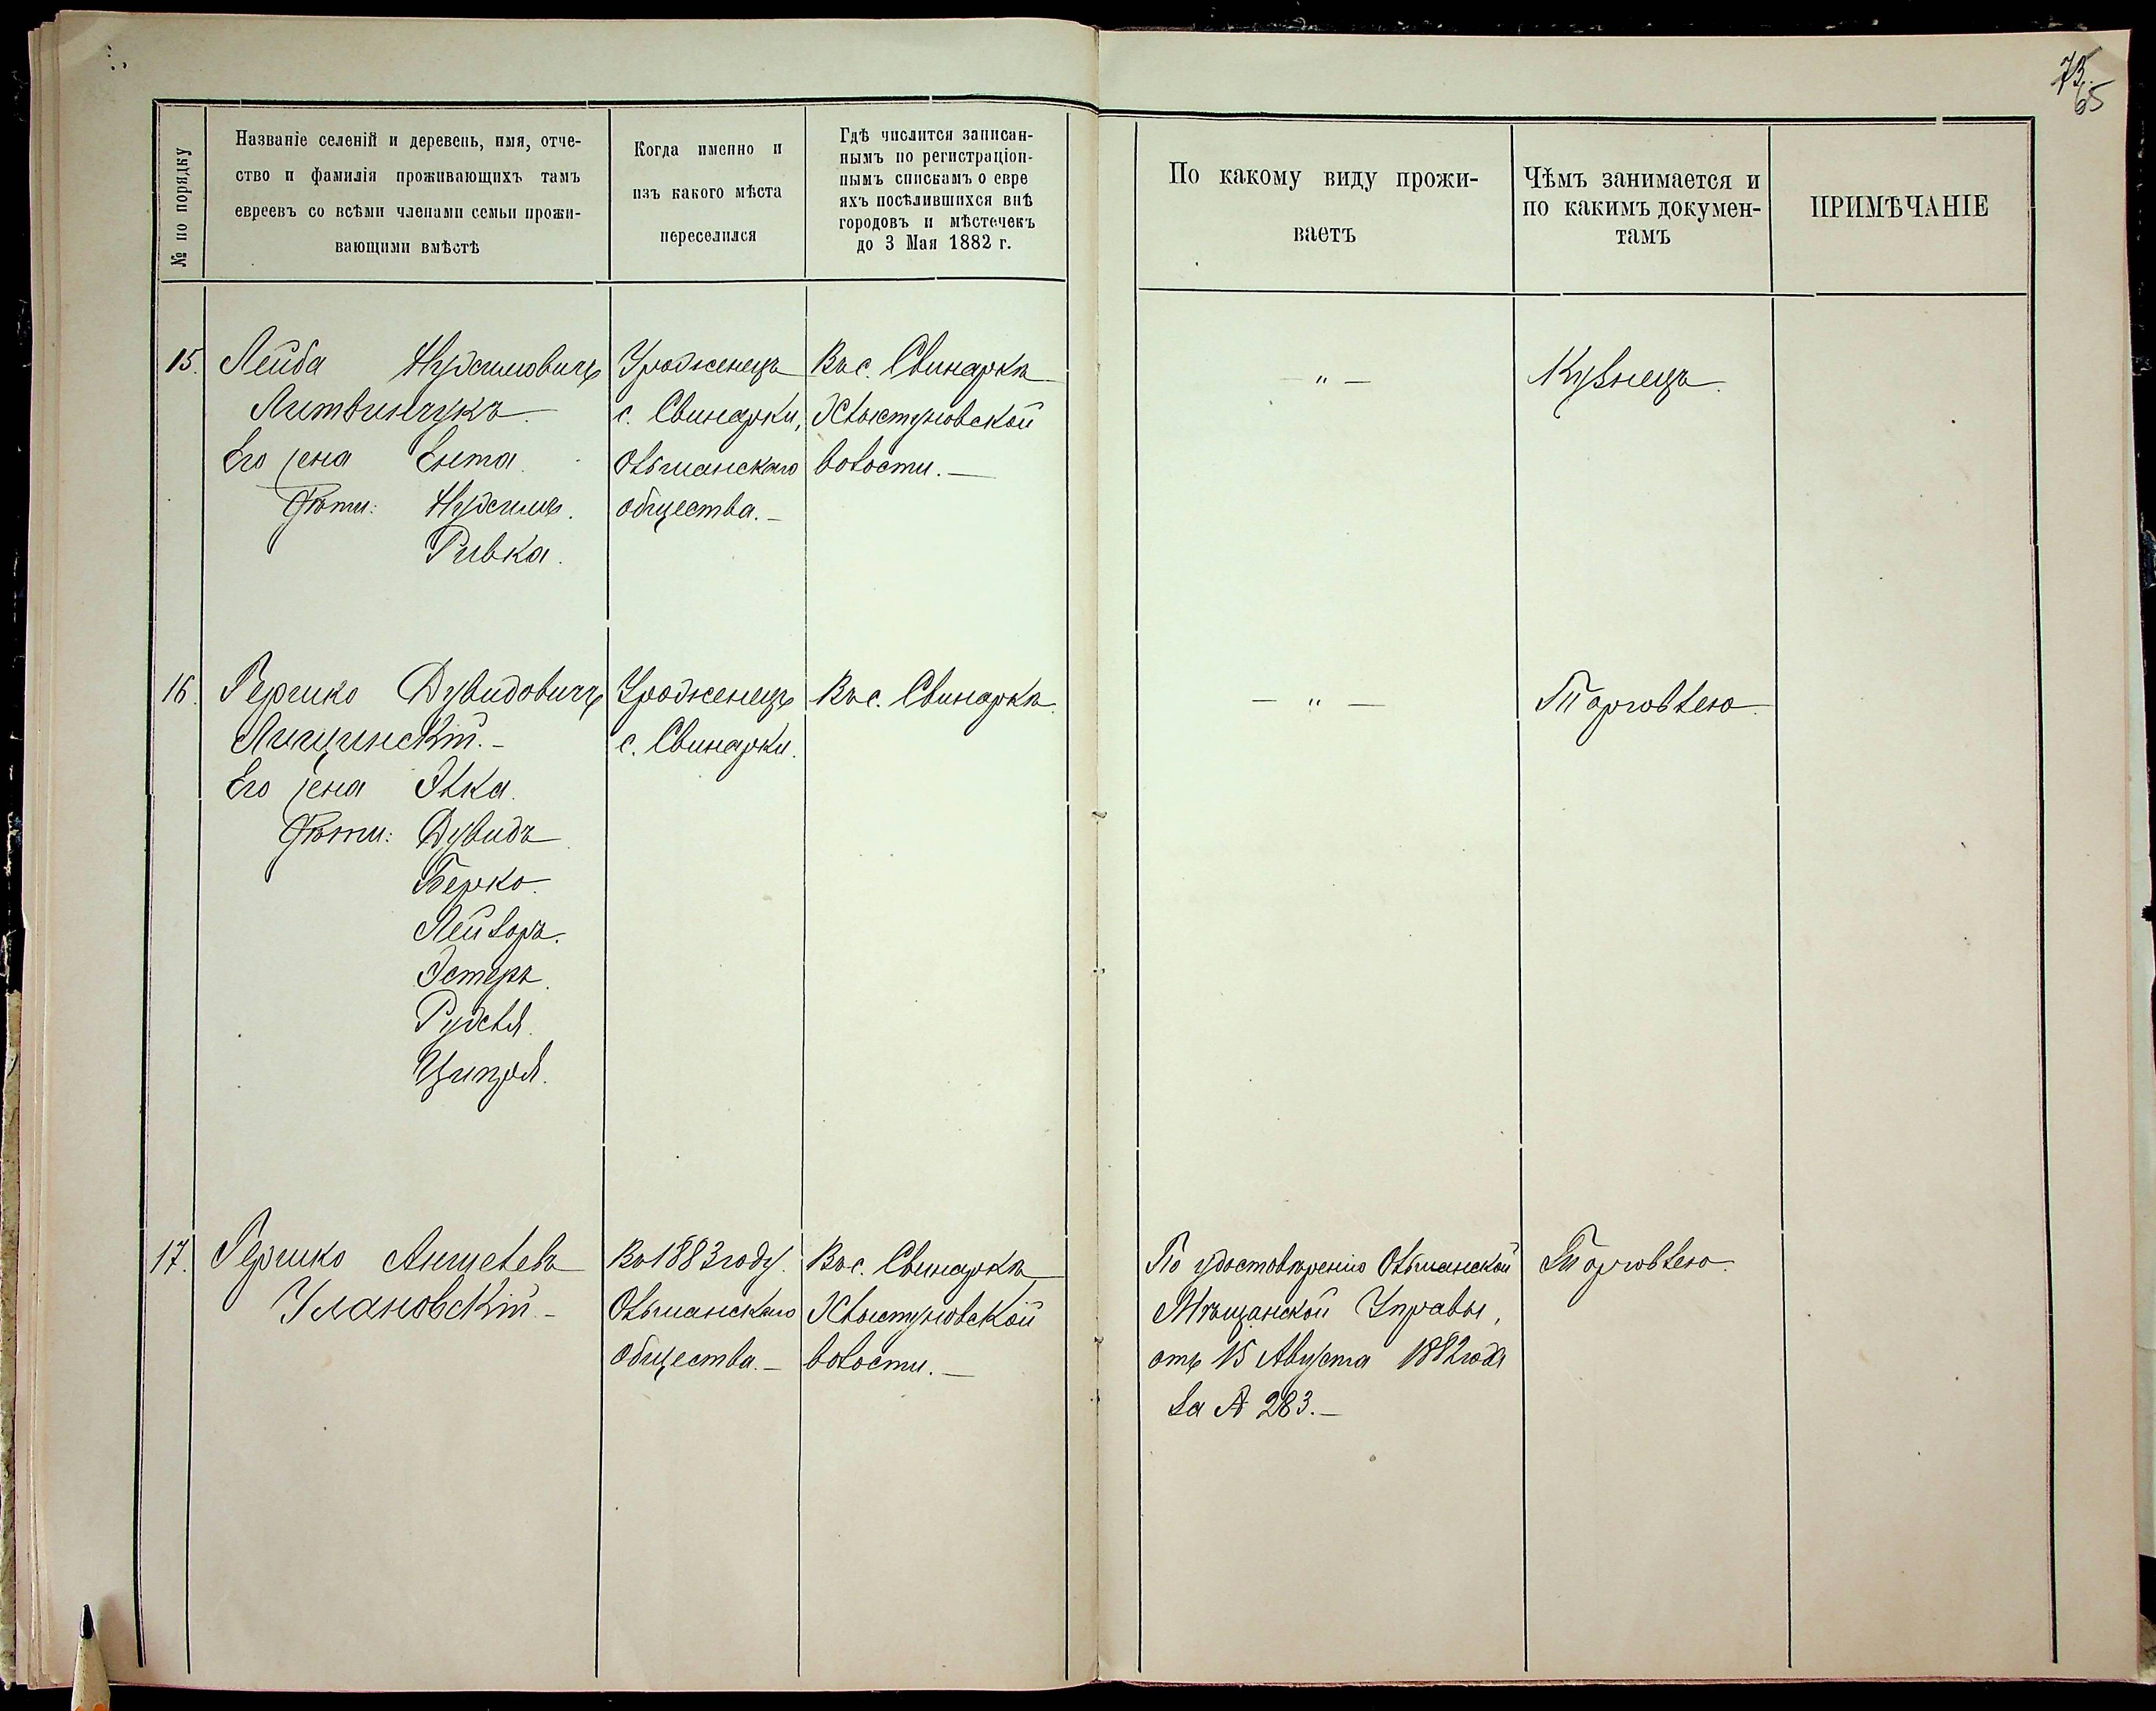 73.
65
№ по порядку
Названіе селеній и деревень, имя, отче-
ство и фамилія проживающихъ тамъ
евреевъ со всѣми членами семьи прожи-
вающими вмѣстѣ
Когда именно и
изъ какого мѣста
переселился
Гдѣ числится записан-
нымъ по регистраціон-
нымъ спискамъ о евре
яхъ посѣлившихся внѣ
городовъ и мѣстечекъ
до 3 Мая 1882 г.
По какому виду прожи-
ваетъ
Чѣмъ занимается и
по какимъ докумен-
тамъ
ПРИМѢЧАНІЕ
15. Лейба Нухимовичъ
Литвинчукъ
Его жена Ента.
Дѣти: Нухимъ.
Ривка.
Уродженецъ
с. Свинарки,
Ольшанскаго
общества. –
Въ с. Свинаркѣ
Хлыстуновской
волости. –
– " –
Кузнецъ.
16. Гершко Дувидовичъ
Лищинскій. –
Его жена Элка.
Дѣти: Дувидъ
Берко.
Лейзоръ.
Эстеръ.
Рухля.
Ципря.
Уродженецъ
с. Свинарки.
Въ с. Свинаркѣ.
– " –
Торговлею.
17. Гершко Аншелевъ
Улановскій. –
Въ 1883 году.
Ольшанскаго
Общества. –
Въ с. Свинаркѣ
Хлыстуновской
волости. –
По удостовѣренію Ольшанской
Мѣщанской Управы,
отъ 15 Августа 1882 года
за № 283. –
Торговлею.